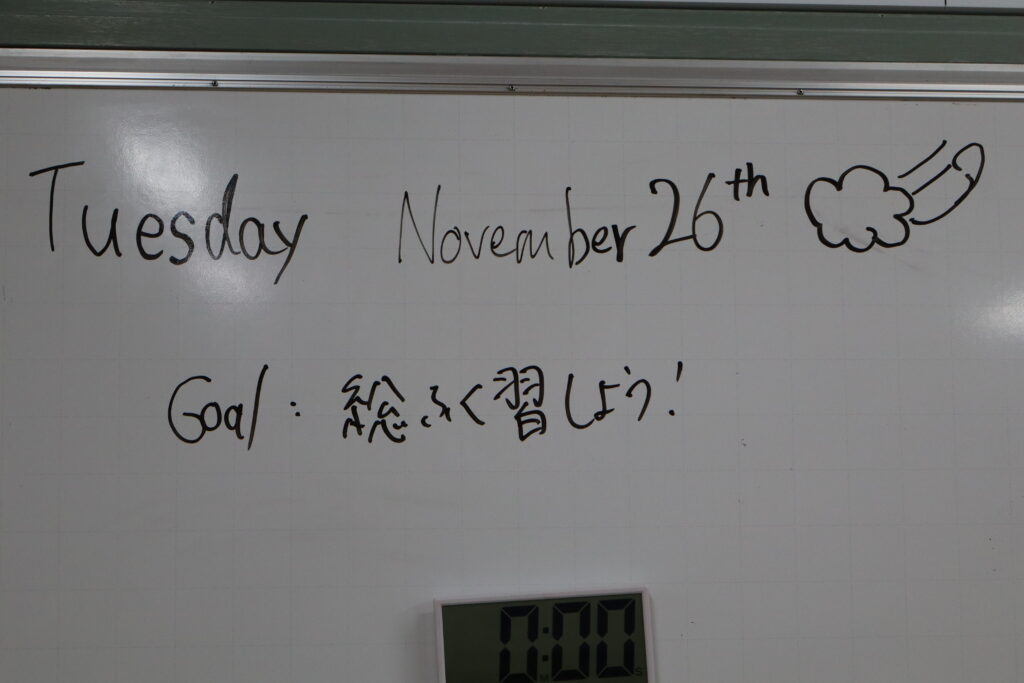 Tuesday November 26th
Goal: 総ふく習しよう!
0:00
M S